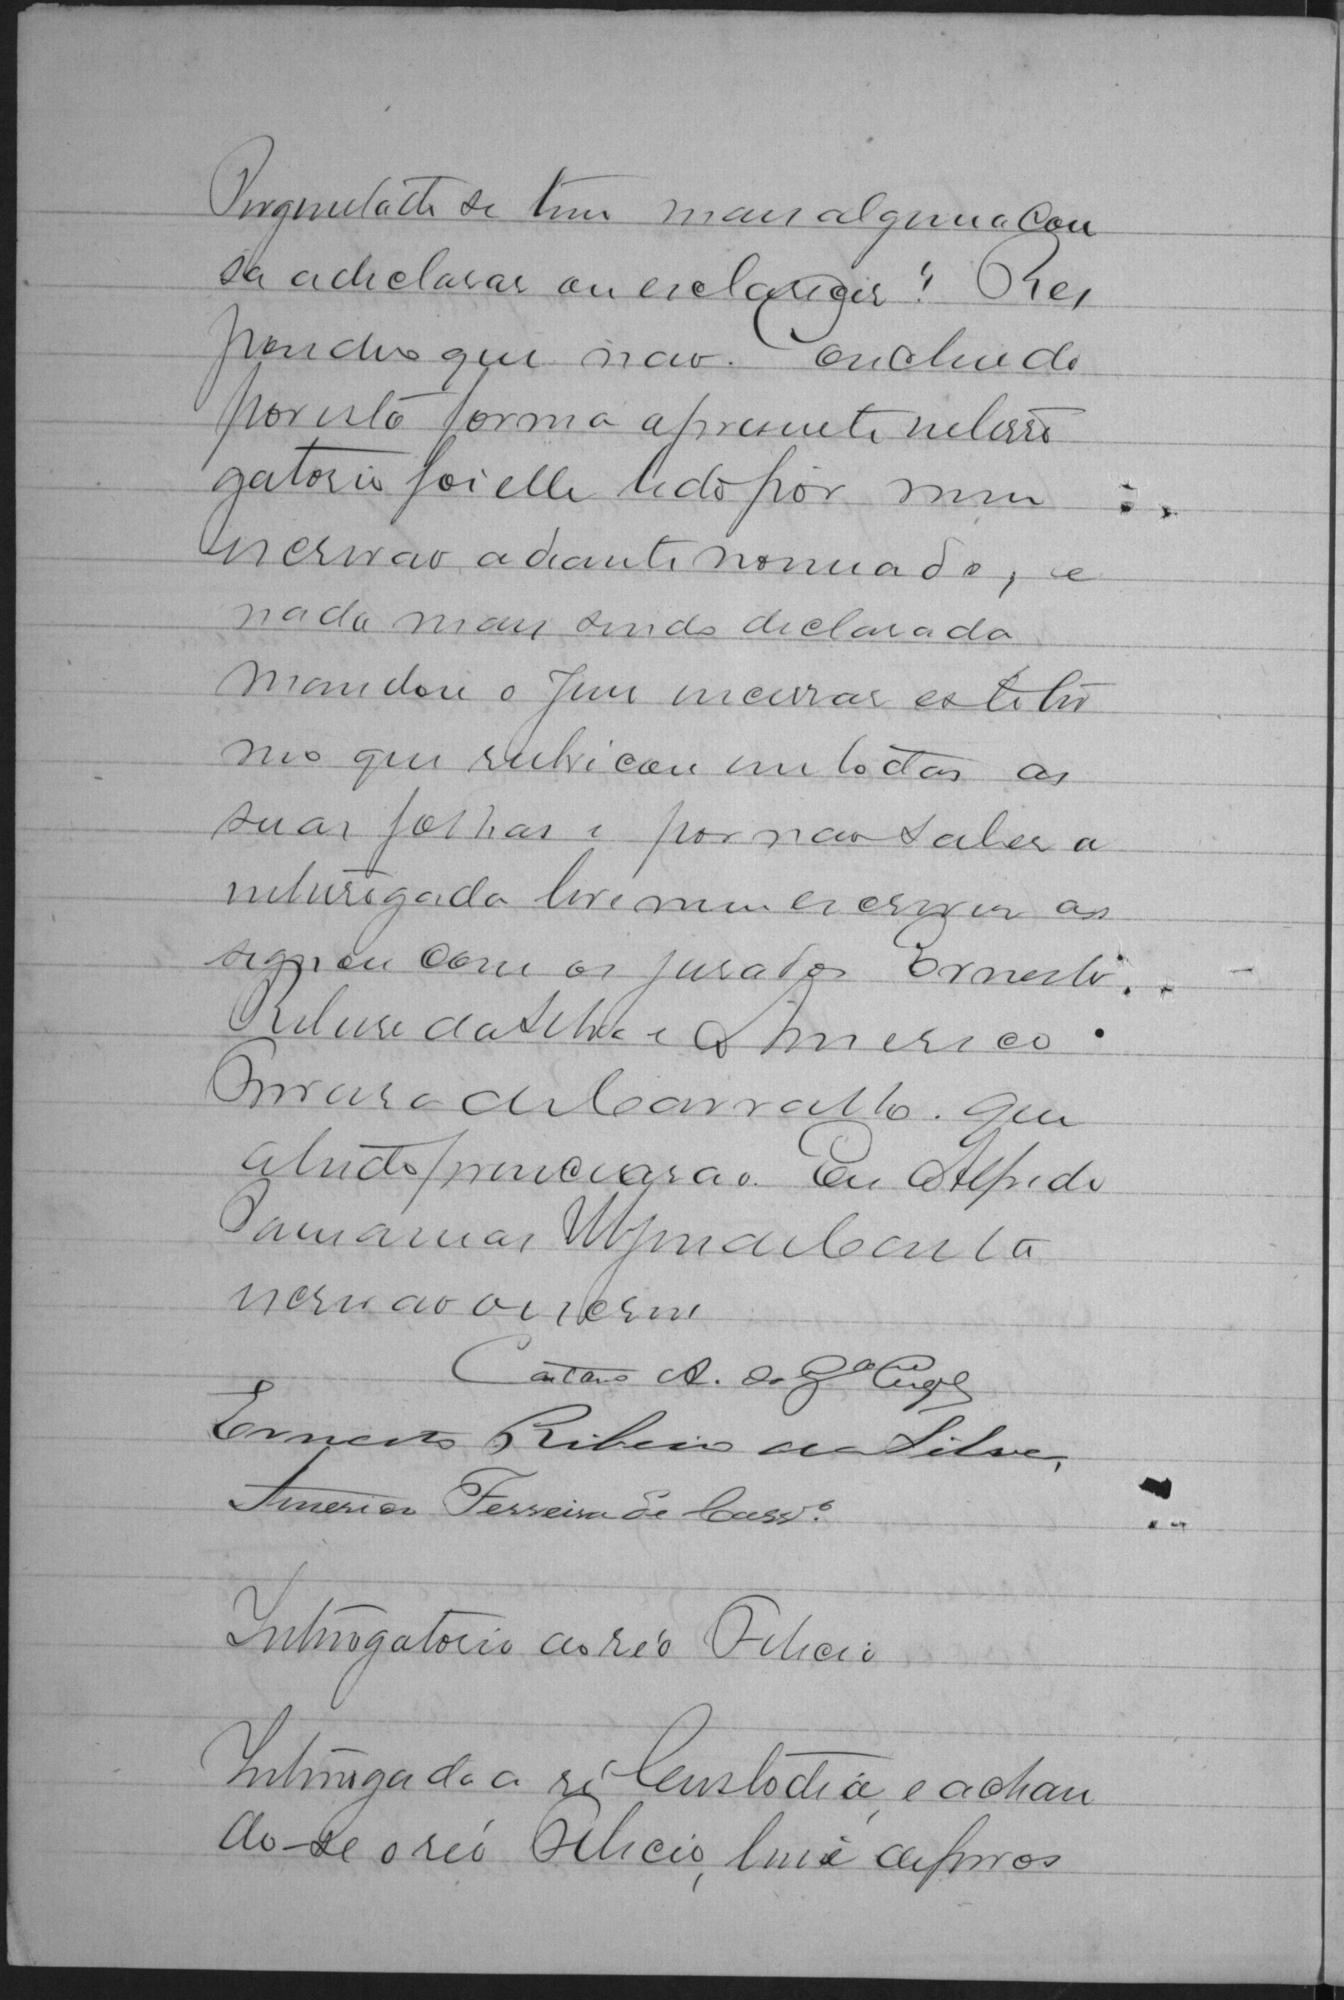 Perguntada se tem mais alguma cou
sa a declarar ou esclarecer? Res
pondeo que não. Concluido
por esta forma a presente inter
gatorio foi elle lido por mim
escrivão adiante nomeado, e
nada mais sendo declarado
mandou o Juiz encerrar este ter
mo que rubricou em todas as
suas folhas e por não saber a
interrogada ler e nem escrever as
signou com os jurados Ernesto
Ribeiro da Silva e Americo
Ferreira de Carvalho. que
a tudo prenciarão. Eu Alfredo
escrivão o escrevi
Caetano A. da
Ernesto Ribeiro da Silva,
Americo Ferreira de Carvº.
Interrogatorio ao reo Felicio
Interrogada a ré Custodia, e achan
do-se o reó Felicio, livre de ferros